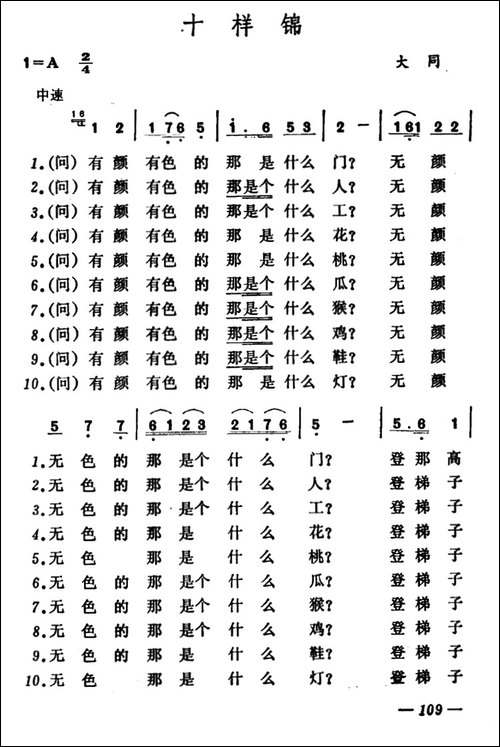 十样锦
1=A 2/4 大同
中速
16 1 2 | 1 76 5 | 1. 6 53 | 2 — | 161 22 |
1.(问)有颜 有色的 那 是什么 门? 无 颜
2.(问)有颜 有色的 那是个什么 人? 无 颜
3.(问)有颜 有色的 那是个什么 工? 无 颜
4.(问)有颜 有色的 那 是什么 花? 无 颜
5.(问)有颜 有色的 那 是什么 桃? 无 颜
6.(问)有颜 有色的 那是个什么 瓜? 无 颜
7.(问)有颜 有色的 那是个什么 猴? 无 颜
8.(问)有颜 有色的 那是个什么 鸡? 无 颜
9.(问)有颜 有色的 那是个什么 鞋? 无 颜
10.(问)有颜 有色的 那 是什么 灯? 无 颜
5 7 7 | 6123 2176 | 5 — | 5.6 1 |
1.无 色 的 那 是个 什 么 门? 登那高
2.无 色 的 那 是个 什 么 人? 登梯子
3.无 色 的 那 是个 什 么 工? 登梯子
4.无 色 的 那 是 什 么 花? 登梯子
5.无 色 那 是 什 么 桃? 登梯子
6.无 色 的 那 是个 什 么 瓜? 登梯子
7.无 色 的 那 是个 什 么 猴? 登梯子
8.无 色 的 那 是个 什 么 鸡? 登梯子
9.无 色 的 那 是 什 么 鞋? 登梯子
10.无 色 那 是 什 么 灯? 登梯子
— 109 —